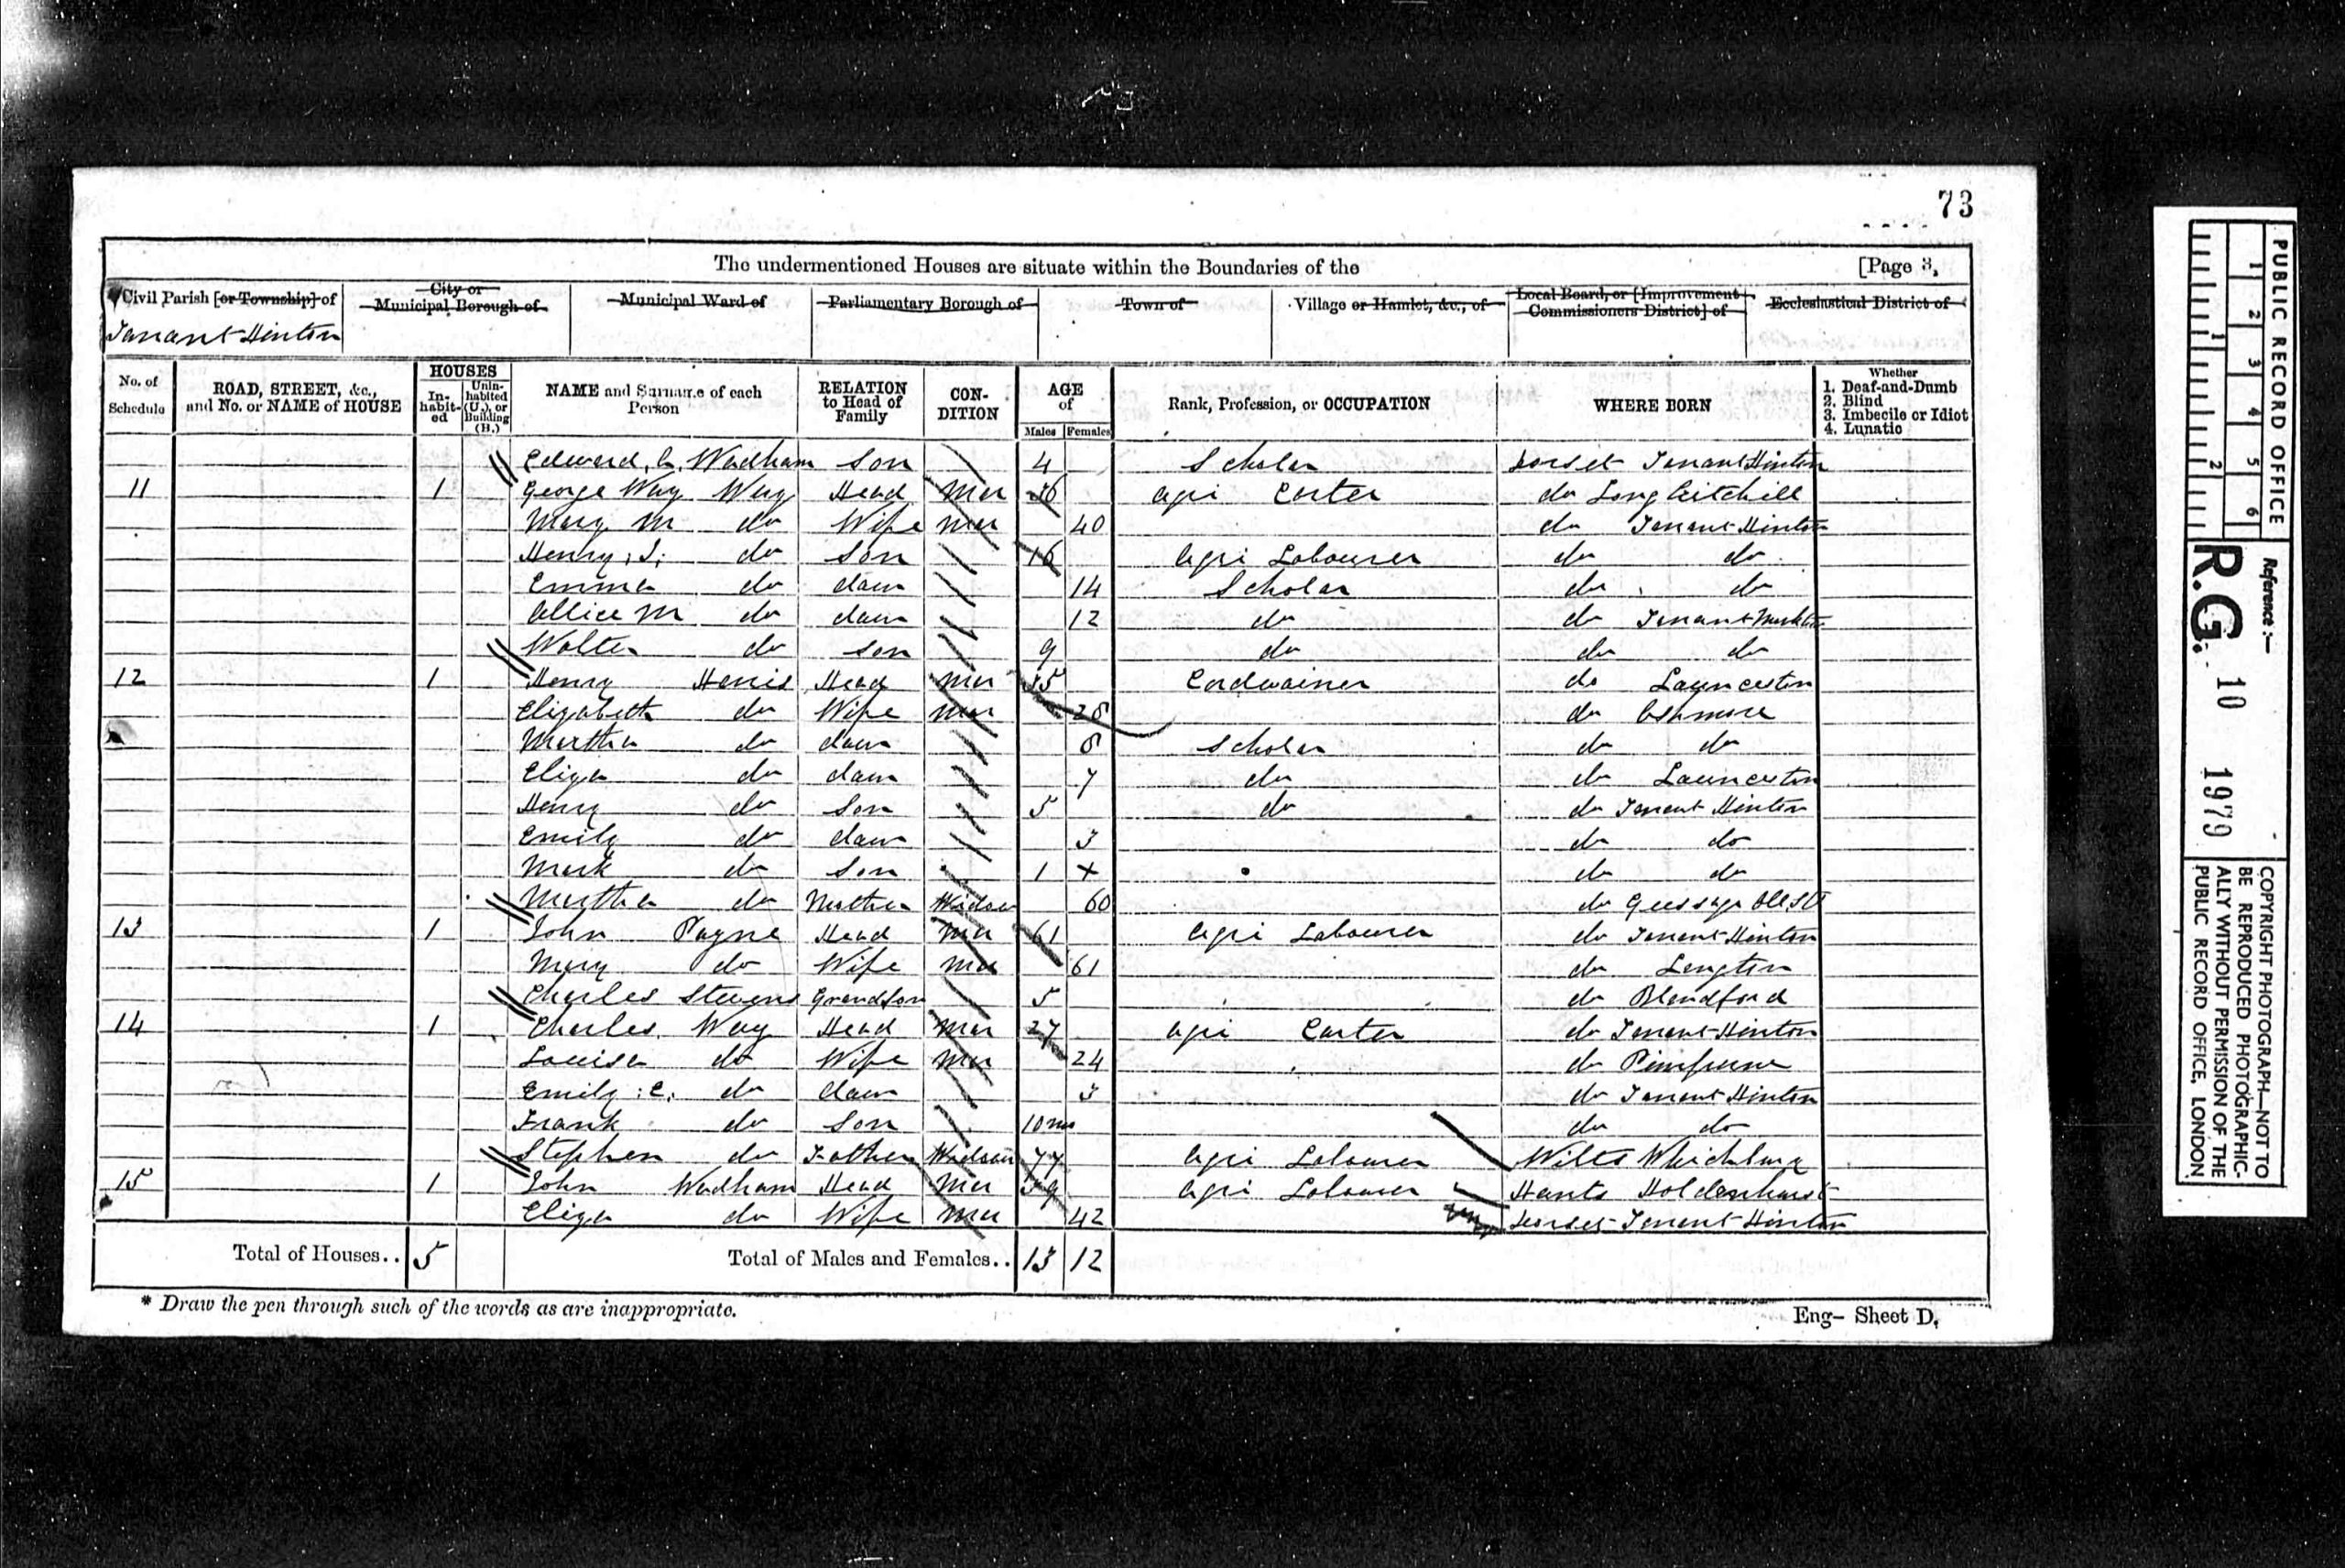 73
The undermentioned Houses are situate within the Boundaries of the [Page 3,
Civil Parish [or Township] of City or Municipal Borough of Municipal Ward of Parliamentary Borough of Town of Village or Hamlet, &c., of Local Board, or [Improvement Commissioners District] of Ecclesiastical District of
Tarrant Hinton
No. of Schedule ROAD, STREET, &c., and No. or NAME of HOUSE HOUSES In-habit-ed Unin-habited (U.), or Building (B.) NAME and Surname of each Person RELATION to Head of Family CON-DITION AGE of Males Females Rank, Profession, or OCCUPATION WHERE BORN Whether 1. Deaf-and-Dumb 2. Blind 3. Imbecile or Idiot 4. Lunatic
Edward Wadham Son 4 Scholar Dorset Tarrant Hinton
11 1 George Way Way Head Mar 36 Agri Carter do Long Critchill
Mary M do Wife Mar 40 do Tarrant Hinton
Henry do Son 16 Agri Labourer do do
Emma do daur 14 Scholar do do
Allice M do daur 12 do do Tarrant
Walter do Son 9 do do do
12 1 Henry Harris Head Mar 35 Cordwainer do Launceston
Elizabeth do Wife Mar 28 do Ashmore
Martha do daur 8 Scholar do do
Eliza do daur 7 do do Launceston
Henry do Son 5 do do Tarrant Hinton
Emily do daur 3 do do
Mark do Son 1 + do do
Martha do Mother Widow 60 do Gussage
13 1 John Payne Head Mar 61 Agri Labourer do Tarrant Hinton
Mary do Wife Mar 61 do Langton
Charles Stevens Grandson 5 do Blandford
14 1 Charles Way Head Mar 27 Agri Carter do Tarrant Hinton
Louisa do Wife Mar 24 do Pimperne
Emily E. do daur 3 do Tarrant Hinton
Frank do Son 10 mo do do
Stephen do Father 77 Agri Labourer Wilts
15 1 John Wadham Head Mar 39 Agri Labourer Hants Holdenhurst
Eliza do Wife Mar 42 Dorset Tarrant Hinton
Total of Houses.. 5 Total of Males and Females.. 13 12
* Draw the pen through such of the words as are inappropriate.
Eng- Sheet D.
PUBLIC RECORD OFFICE
1 2 3 4 5 6
1 2
Reference :-
R.G. 10 1979
COPYRIGHT PHOTOGRAPH—NOT TO
BE REPRODUCED PHOTOGRAPHIC-
ALLY WITHOUT PERMISSION OF THE
PUBLIC RECORD OFFICE, LONDON